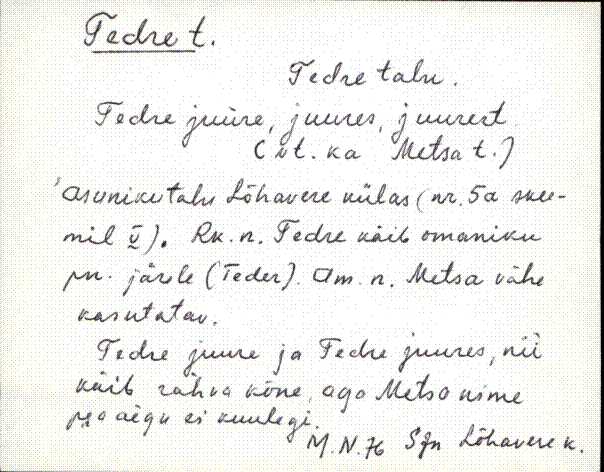 Tedre t.
Tedre talu.
Tedre juure, juures, juurest
(vt. ka Metsa t.)
Asunikutalu Lõhavere külas (nr. 5a skee-
mil V). Rk. n. Tedre käib omaniku
pn. järele (Teder). Am. n. Metsa vähe
kasutatav.
Tedre juure ja Tedre juures, nii
käib rahva kõne, aga Metsa nime
peaaegu ei kuulegi.
M. N. 76 Sjn Lõhavere k.